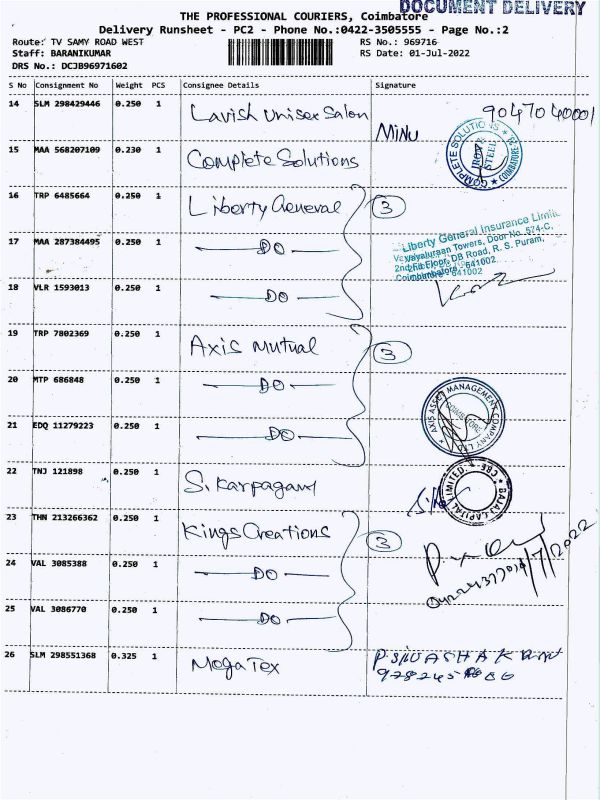 DOCUMENT DELIVERY
THE PROFESSIONAL COURIERS, Coimbatore
Delivery Runsheet - PC2 - Phone No.:0422-3505555 - Page No.:2
Route: TV SAMY ROAD WEST RS No.: 969716
Staff: BARANIKUMAR RS Date: 01-Jul-2022
DRS No.: DCJB96971602
S No Consignment No Weight PCS Consignee Details Signature
14 SLM 298429446 0.250 1 Lavish Unisex Salon Minu 9047040001
15 MAA 568207109 0.230 1 Complete Solutions
COMPLETE SOLUTIONS COIMBATORE
IRON & STEEL
16 TRP 6485664 0.250 1 Liberty General 3
17 MAA 287384495 0.250 1 DO
Liberty General Insurance Limite
Vayaluraan Towers, Door No. 574-C,
2nd Floor, DB Road, R. S. Puram,
Coimbatore - 641002
18 VLR 1593013 0.250 1 DO
19 TRP 7802369 0.250 1 Axis Mutual 3
20 MTP 686848 0.250 1 DO
AXIS ASSET MANAGEMENT COMPANY LTD
COIMBATORE
21 EDQ 11279223 0.250 1 DO
22 TNJ 121898 0.250 1 S. Karpagam
BAJAJ CAPITAL LIMITED. CBE
23 THN 213266362 0.250 1 Kings Creations 3
24 VAL 3085388 0.250 1 DO
25 VAL 3086770 0.250 1 DO
26 SLM 298551368 0.325 1 Mega Tex